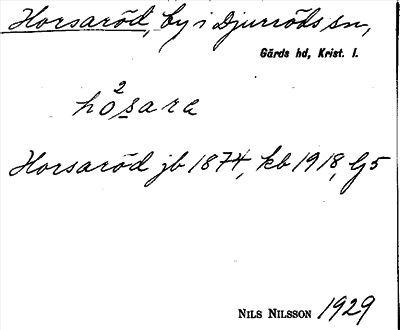 Horsaröd, by i Djurröds sn,
Gärds hd, Krist. l.
hòsara
Horsaröd jb 1874, kb 1918, Gj 5
NILS NILSSON 1929